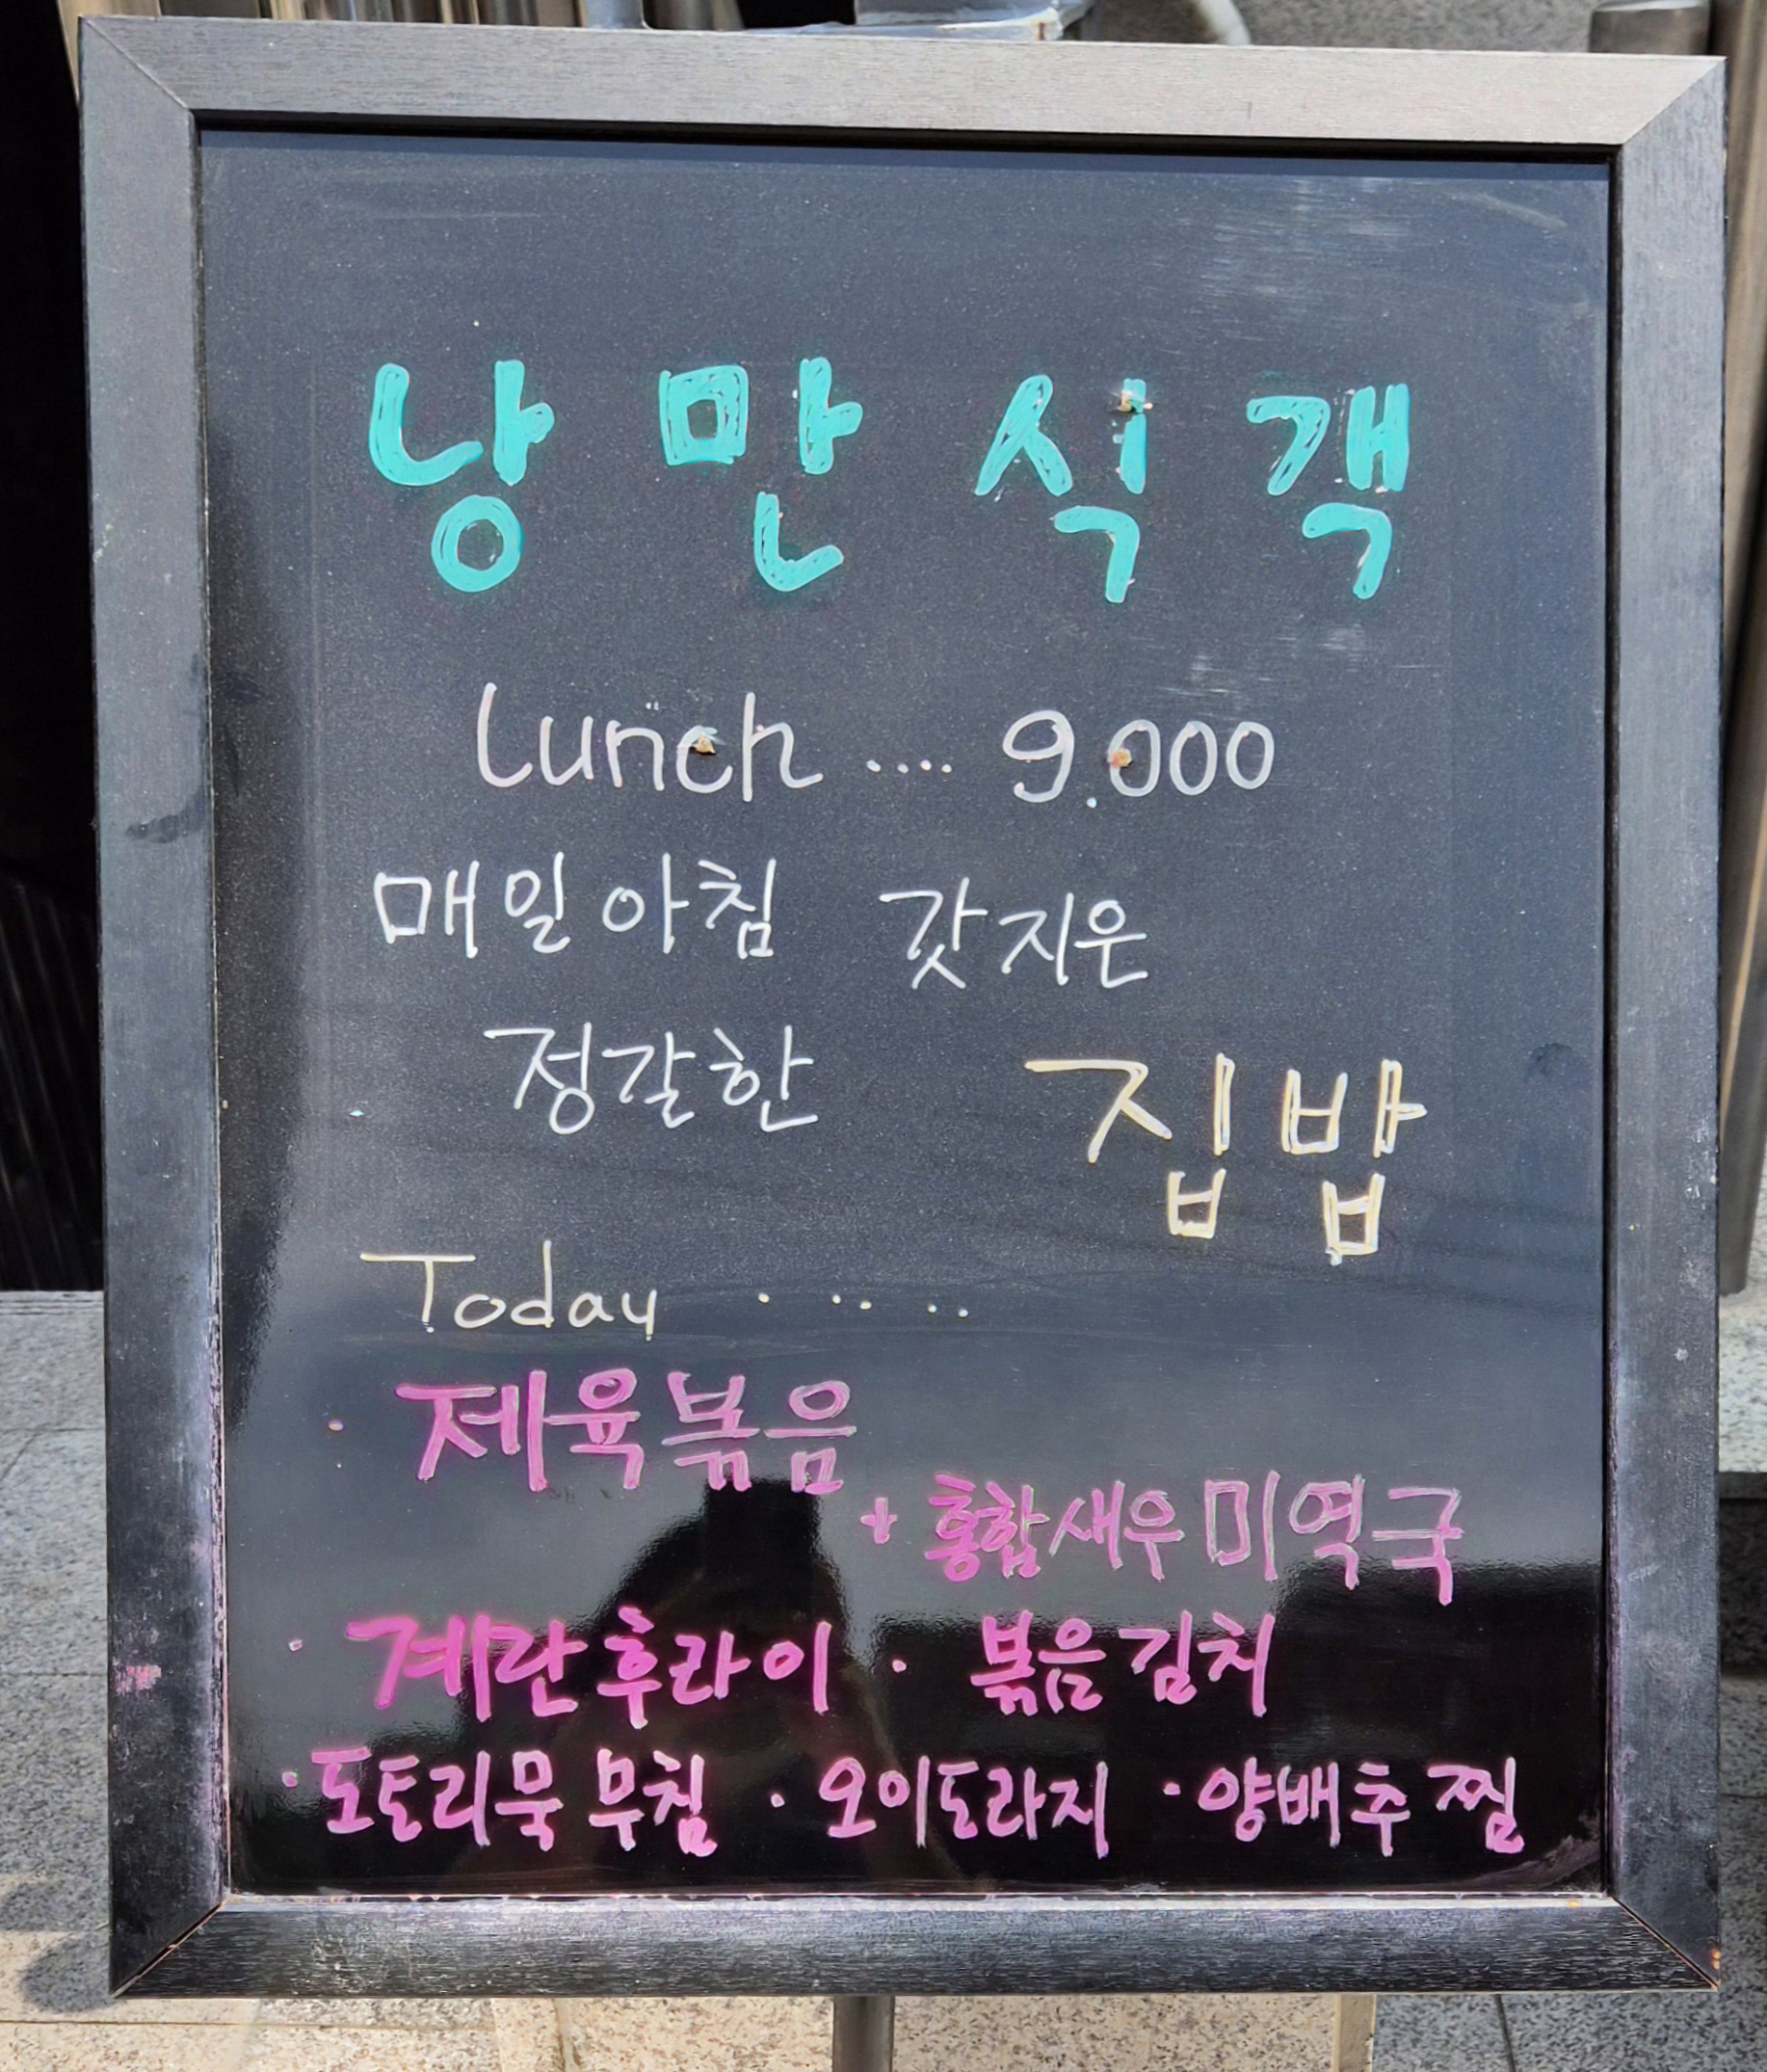 낭만식객
Lunch .... 9.000
매일아침 갓지은
정갈한 집밥
Today . .. ..
· 제육볶음
+ 홍합새우미역국
· 계란후라이 · 볶음김치
· 도토리묵 무침 · 오이도라지 · 양배추 찜